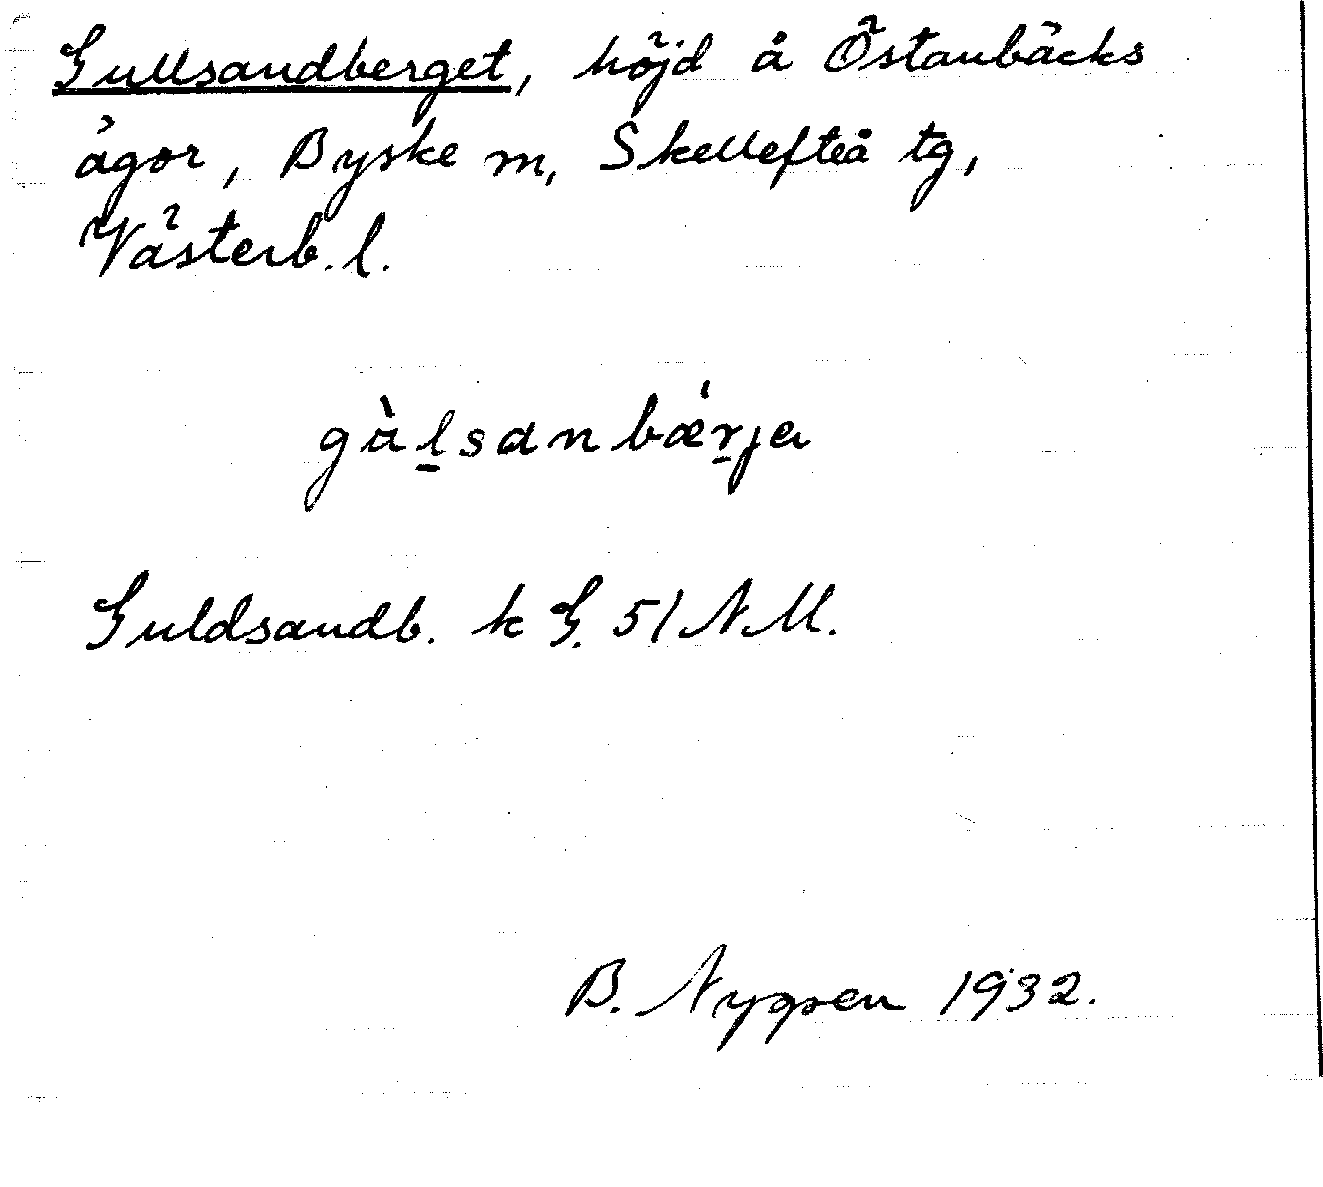 Gullsandberget, höjd å Östanbäcks
ägor, Byske m, Skellefteå tg,
Västerb. l.
gàl̠sanbǽr̠ja
Guldsandb. k G. 51 N M.
B. Nygren 1932.